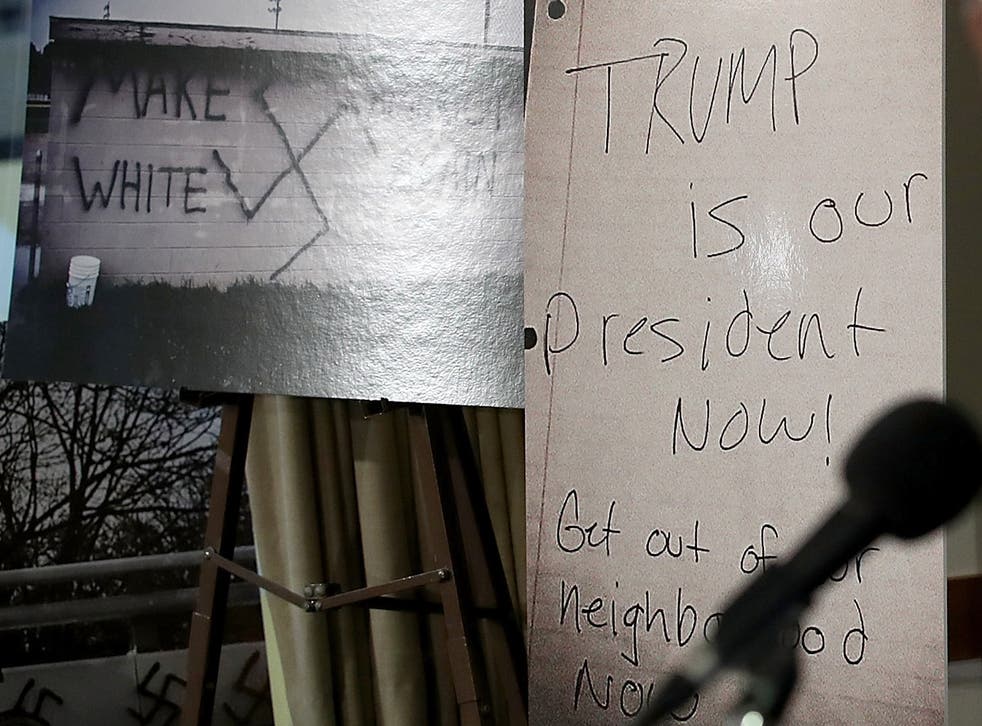 MAKE
WHITE
TRUMP
is our
President
NOW!
Get out of our
neighborhood
Now